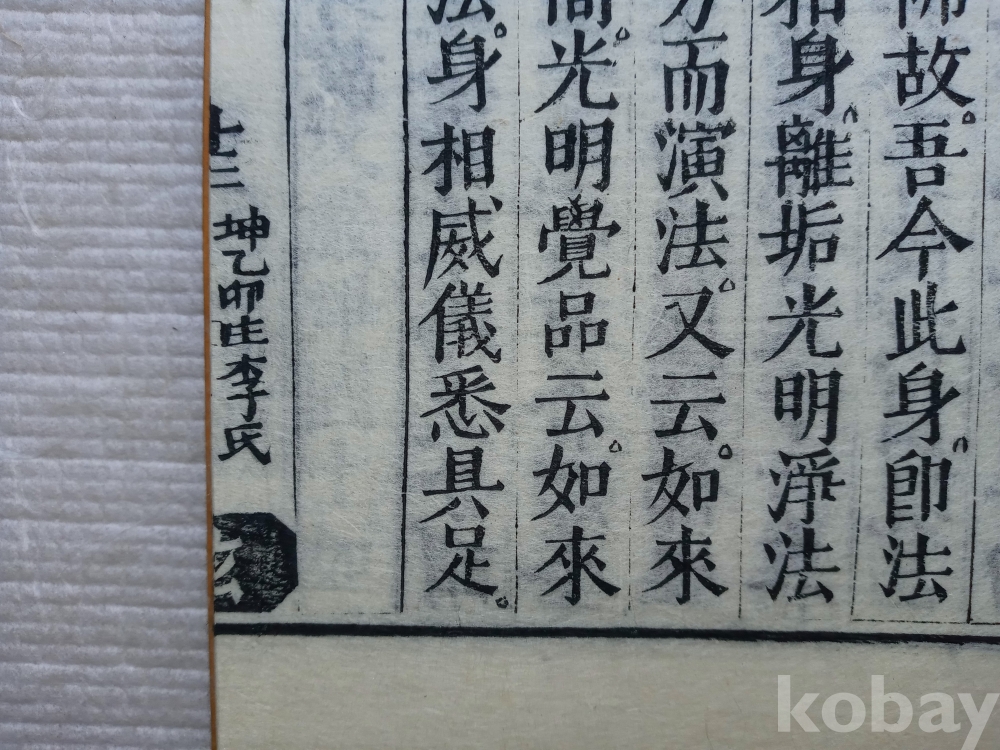 故吾今此身即法
身離垢光明淨法
而演法又云如來
光明覺品云如來
身相威儀悉具足
坤乙卯生李氏
kobay